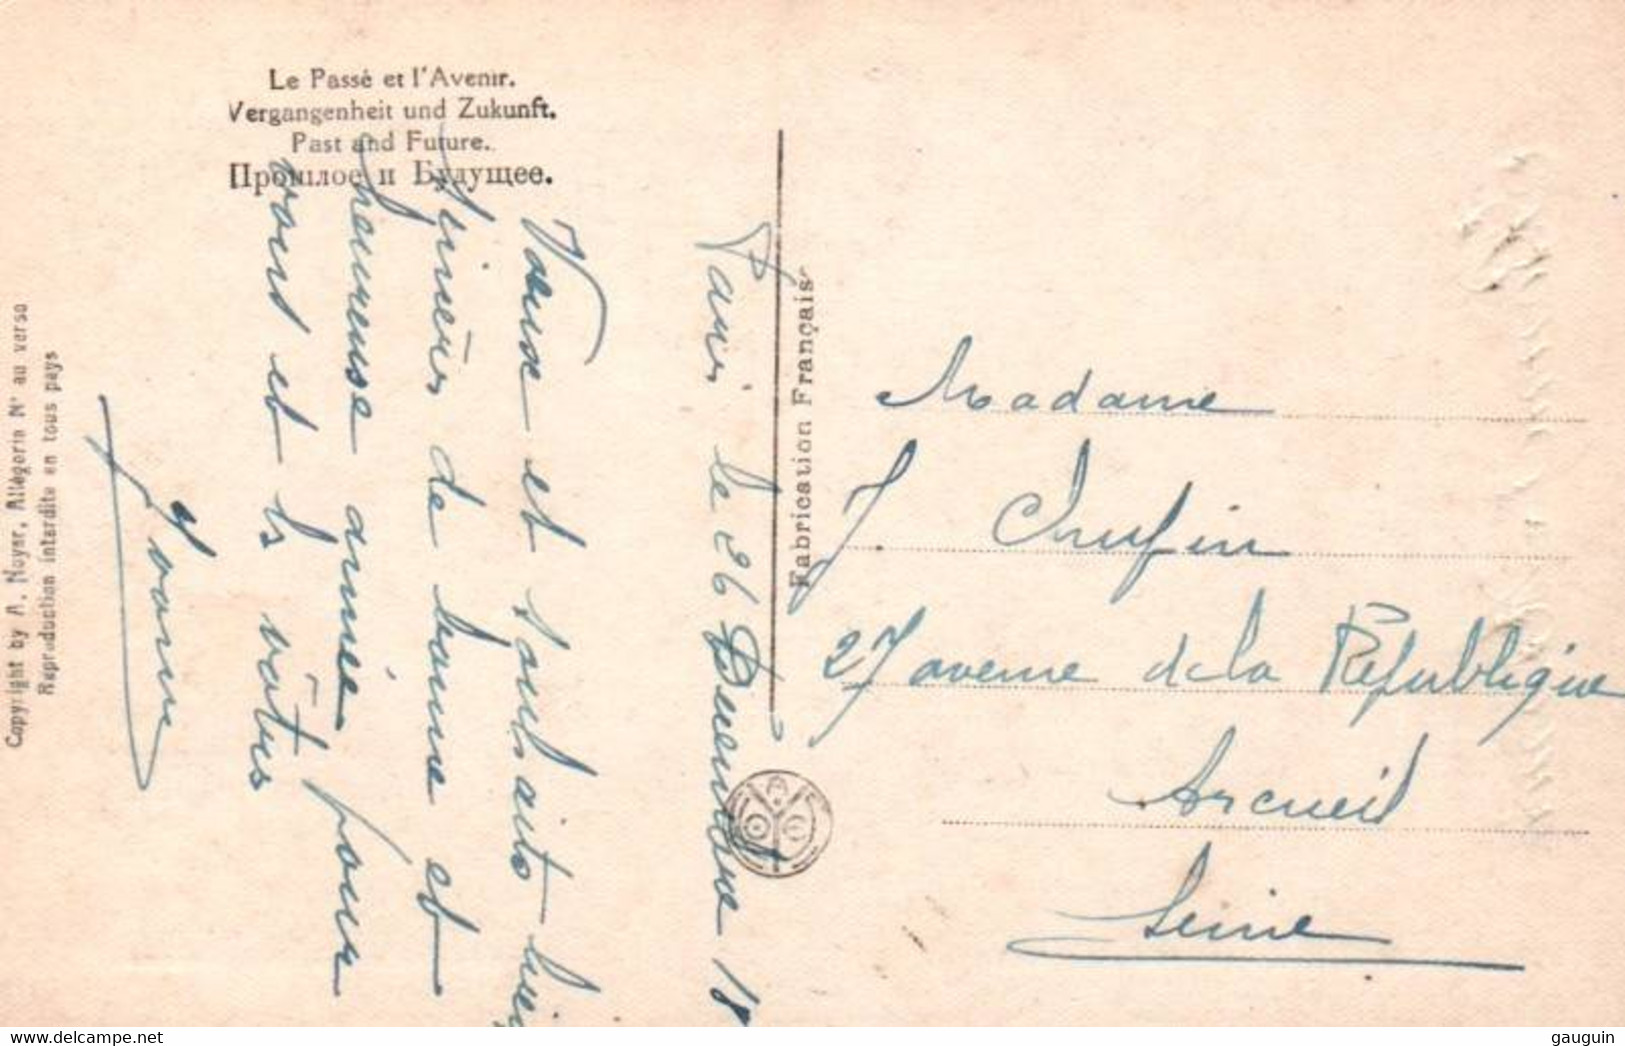 Le Passé et l'Avenir.
Vergangenheit und Zukunft.
Past and Future.
Прошлое и Будущее.
Copyright by A. Noyer, Allégorie N° au verso
Reproduction interdite en tous pays
Fabrication Française
Paris le 26 Décembre 18
Vœux et souhaits bien
sincères de bonne et
heureuse année pour
vous et les vôtres
Yvonne
Madame
J
27 avenue de la République
Arcueil
Seine
gauguin